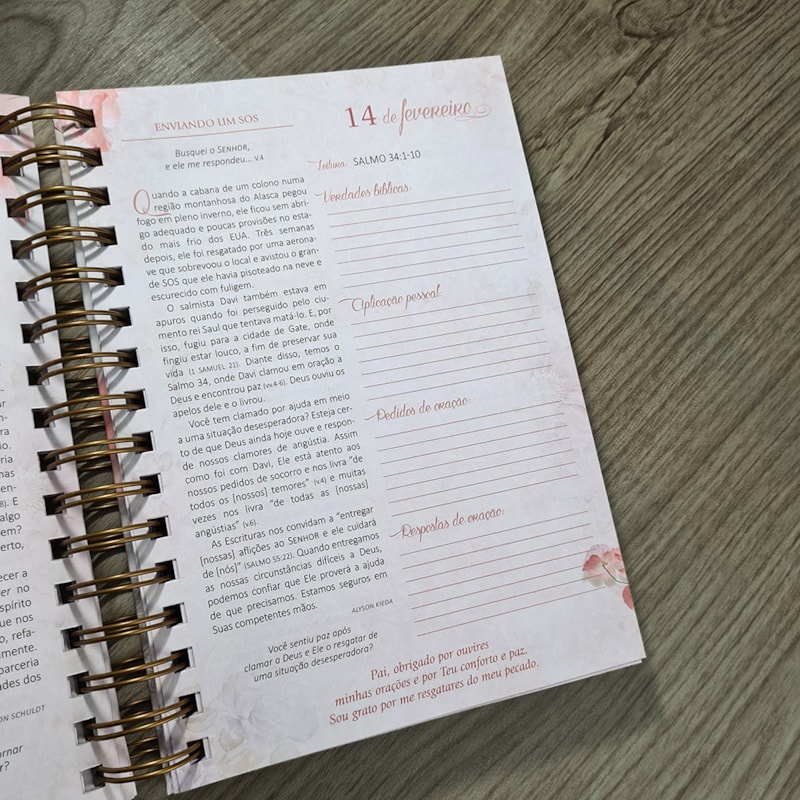 ria
mas
en-
8). E
algo
em?
erto,
ecer a
er no
spírito
ue nos
o, refa-
mente.
parceria
ades dos
ON SCHULDT
ornar
r?
ENVIANDO UM SOS
14 de fevereiro
Busquei o SENHOR,
e ele me respondeu... V.4
Quando a cabana de um colono numa
região montanhosa do Alasca pegou
fogo em pleno inverno, ele ficou sem abri-
go adequado e poucas provisões no esta-
do mais frio dos EUA. Três semanas
depois, ele foi resgatado por uma aerona-
ve que sobrevoou o local e avistou o gran-
de SOS que ele havia pisoteado na neve e
escurecido com fuligem.
O salmista Davi também estava em
apuros quando foi perseguido pelo ciu-
mento rei Saul que tentava matá-lo. E, por
isso, fugiu para a cidade de Gate, onde
fingiu estar louco, a fim de preservar sua
vida (1 SAMUEL 21). Diante disso, temos o
Salmo 34, onde Davi clamou em oração a
Deus e encontrou paz (vv.4-6). Deus ouviu os
apelos dele e o livrou.
Você tem clamado por ajuda em meio
a uma situação desesperadora? Esteja cer-
to de que Deus ainda hoje ouve e respon-
de nossos clamores de angústia. Assim
como foi com Davi, Ele está atento aos
nossos pedidos de socorro e nos livra "de
todos os [nossos] temores" (v.4) e muitas
vezes nos livra "de todas as [nossas]
angústias" (v.6).
As Escrituras nos convidam a "entregar
[nossas] aflições ao SENHOR e ele cuidará
de [nós]" (SALMO 55:22). Quando entregamos
as nossas circunstâncias difíceis a Deus,
podemos confiar que Ele proverá a ajuda
de que precisamos. Estamos seguros em
Suas competentes mãos.
ALYSON KIEDA
Você sentiu paz após
clamar a Deus e Ele o resgatar de
uma situação desesperadora?
Leitura: SALMO 34:1-10
Verdades bíblicas:
Aplicação pessoal:
Pedidos de oração:
Respostas de oração:
Pai, obrigado por ouvires
minhas orações e por Teu conforto e paz.
Sou grato por me resgatares do meu pecado.